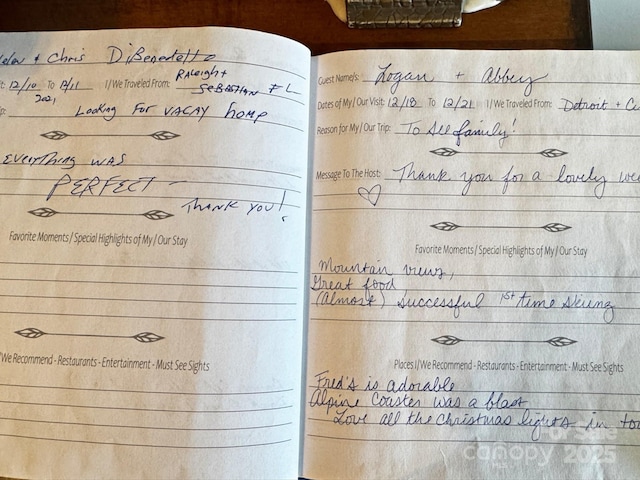 + Chris DiBenedetto
12/10 To 12/11 I/We Traveled From: Raleigh +
2021 Sebastian FL
Looking For VACAY home
Everything was
PERFECT -
Thank you!
Favorite Moments / Special Highlights of My / Our Stay
/We Recommend - Restaurants - Entertainment - Must See Sights
Guest Name/s: Logan + Abbey
Dates of My / Our Visit: 12/18 To 12/21 I/We Traveled From: Detroit +
Reason for My / Our Trip: To see family!
Message To The Host: Thank you for a lovely
Favorite Moments / Special Highlights of My / Our Stay
Mountain views,
Great food
(Almost) successful 1st time skiing
Places I/We Recommend - Restaurants - Entertainment - Must See Sights
Fred's is adorable
Alpine Coaster was a blast
Love all the Christmas lights in
canopy 2025